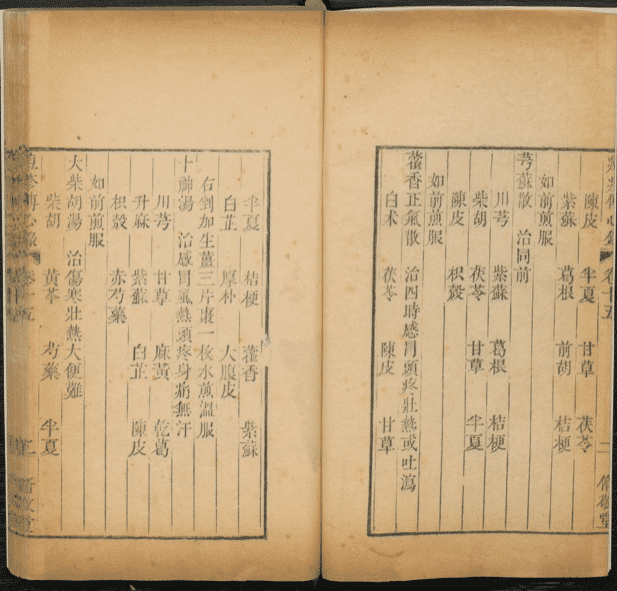 卷十五
陳皮 半夏 甘草 茯苓
紫蘇 葛根 前胡 桔梗
如前煎服
芎蘇散 治同前
川芎 紫蘇 葛根 桔梗
柴胡 茯苓 甘草 半夏
陳皮 枳殼
如前煎服
藿香正氣散 治四時感冒頭疼壯熱或吐瀉
白术 茯苓 陳皮 甘草
半夏 桔梗 藿香 紫蘇
白芷 厚朴 大腹皮
右剉加生薑三片棗一枚水煎溫服
十神湯 治感冒風熱頭疼身痛無汗
川芎 甘草 麻黃 乾葛
升麻 紫蘇 白芷 陳皮
枳殼 赤芍藥
如前煎服
大柴胡湯 治傷寒壯熱大便難
柴胡 黃芩 芍藥 半夏
卷十五